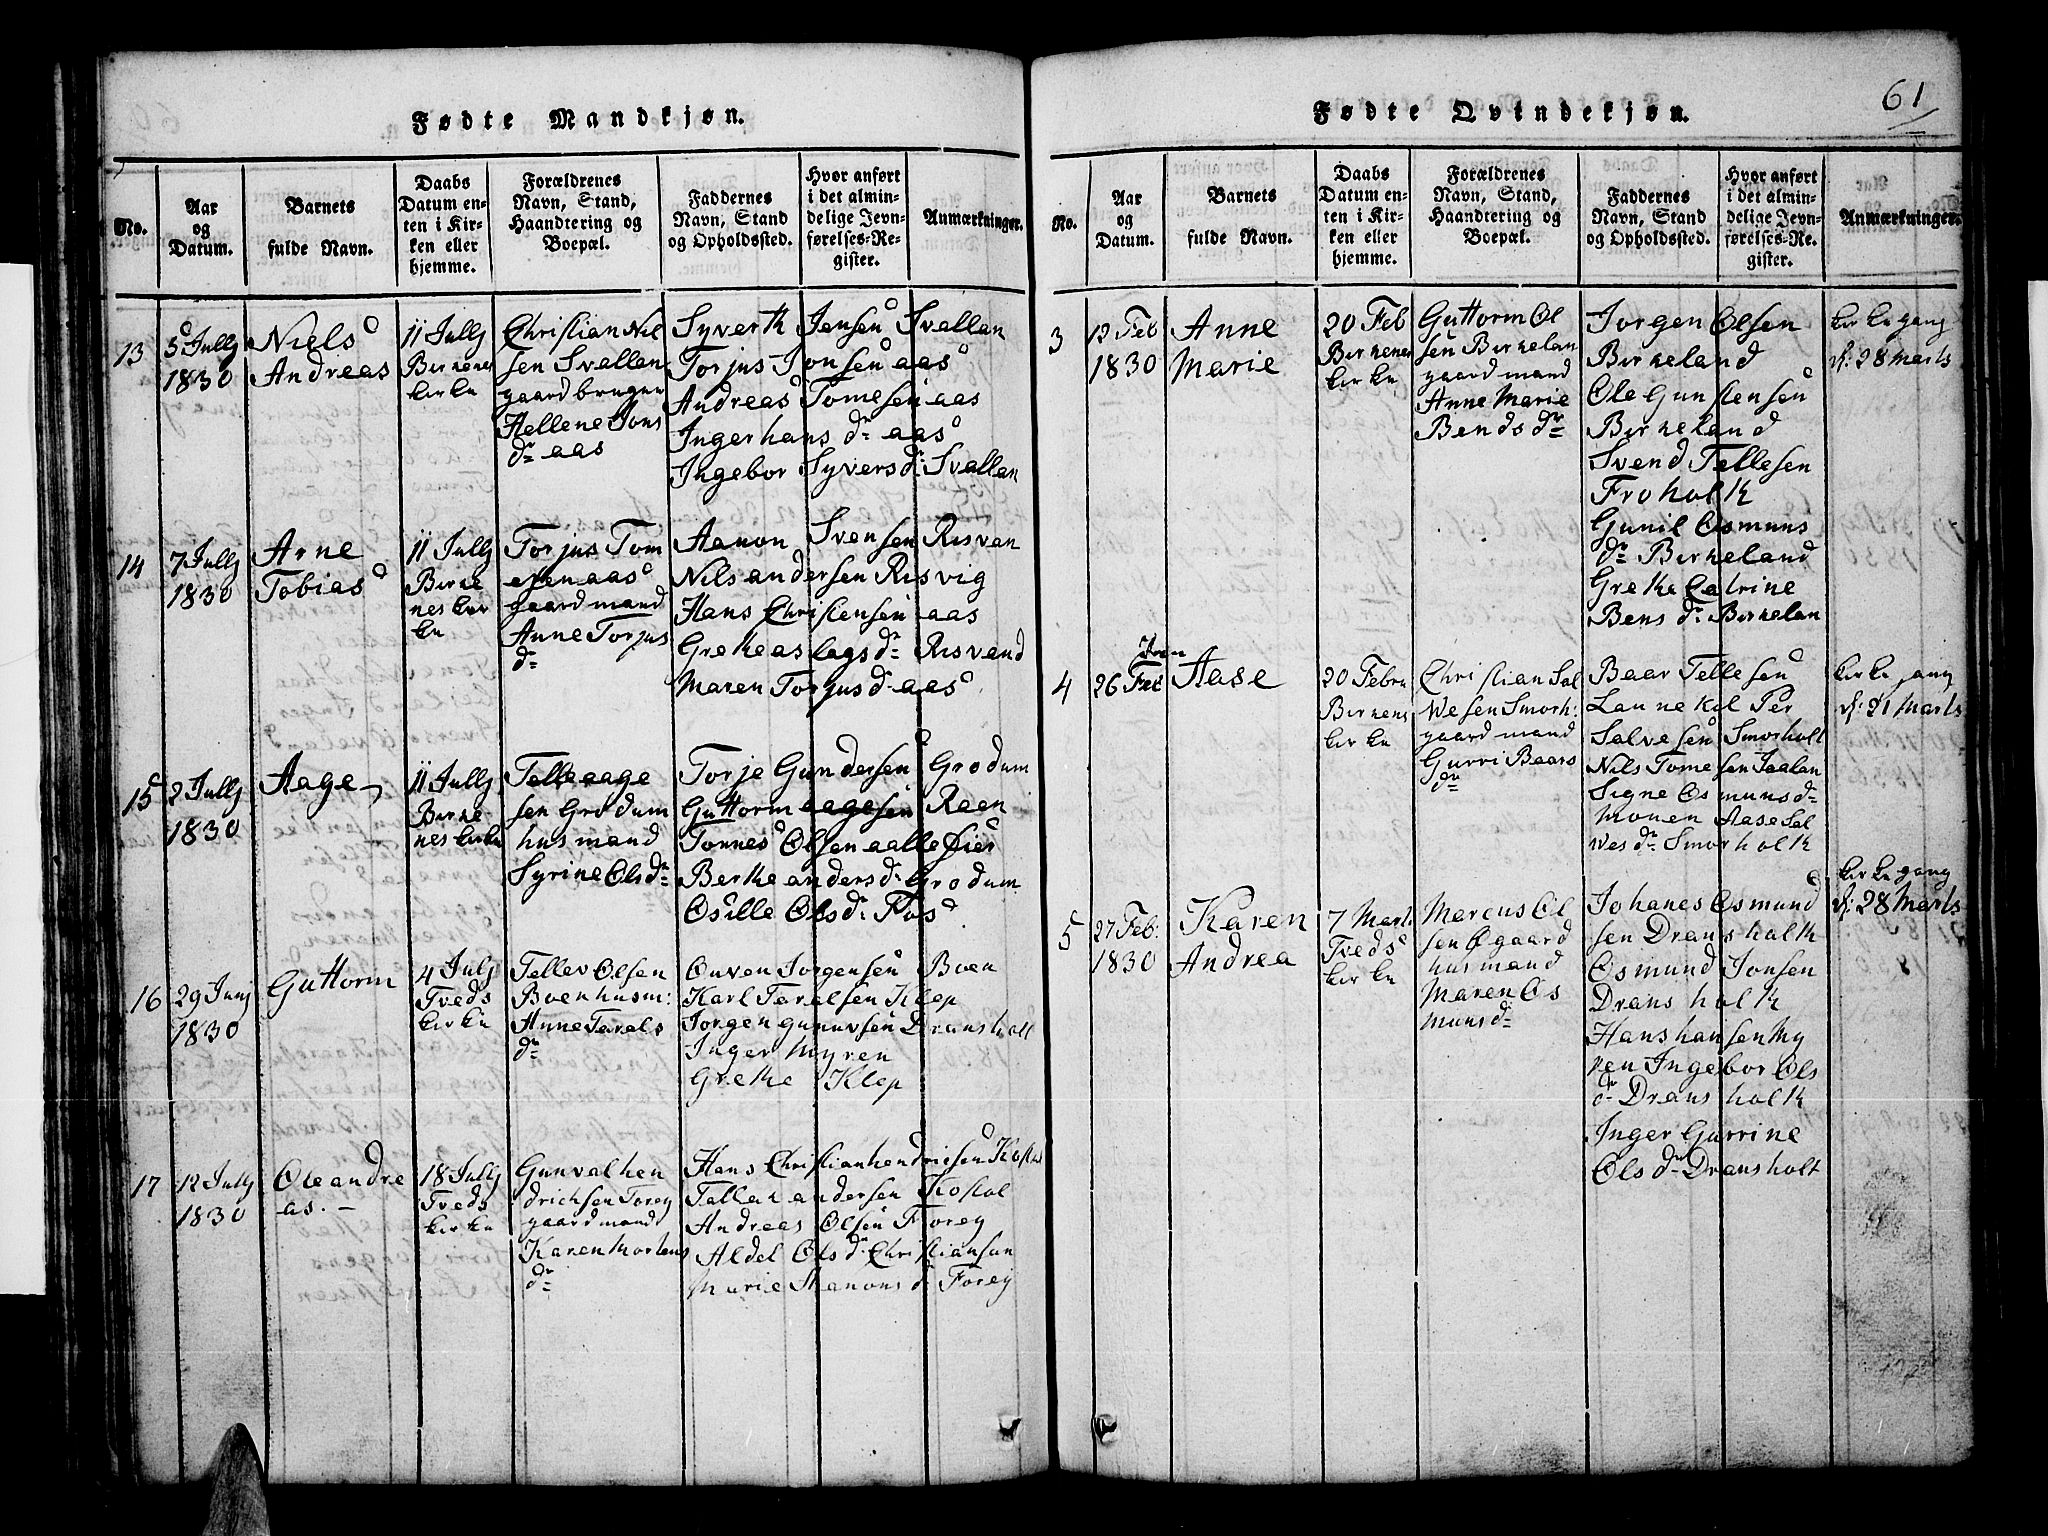 Fødte Mandkjøn.
No.
Aar
og
Datum.
Barnets
fulde Navn.
Daabs
Datum en-
ten i Kir-
ken eller
hjemme.
Forældrenes
Navn, Stand,
Haandtering og
Boepæl.
Faddernes
Navn, Stand
og Opholdssted.
Hvor anført
i det almin-
delige Jevn-
førelses-Re-
gister.
Anmærkninger.
13
5 Jullj
1830
Niels
Andreas
11 Jullj
Birkenes
kirke
Christian Niel
sen Svallan
gaardbruger
Hellene Jons
dr aas
Syvert Jensen Svallan
Torjus Jonsen aas
Andreas Tomesen aas
Inger hans dr aas
Ingebor Syvers dr Svallan
14
7 Jullj
1830
Arne
Tobias
11 Jullj
Birke
nes kir
ke
Torjus Tom
esen aas
gaardmand
Anne Torjus
dr
Aanon Svensen Risvan
Nils andersen Risvig
Hans Christensen aas
Grethe aslags dr Risvand
Maren Torjus dr aas
15
2 Jullj
1830
Aage
11 Jullj
Birke
nes kirke
Telle aage
sen Grodum
husmand
Syrine Ols dr
Torje Gundersen Grodum
Guttorm aagesen Raen
Tonnes Olsen aallefier
Berthe anders dr Grodum
Osille Ols dr Flos
16
29 Junj
1830
Guttorm
4 Julj
Tveds
kirke
Tellev Olsen
Boen husm:
Anne Tarals
dr
Ouven Jorgensen Boen
Karl Taralsen Klep
Jorgen gunuvsen Dransholt
Inger Myren
Grethe Klep
17
12 Jullj
1830
Ole andre
as. –
18 Jullj
Tveds
kirke
Gunval hen
drichsen Forey
gaardmand
Karen Mortens
dr
Hans Christian hendricsen Kostøl
Tallak andersen Kostøl
Andreas Olsen Forey
Aldel Ols dr Christiansan
Marie Aanons dr Forey
61
Fødte Qvindekjøn.
No.
Aar
og
Datum.
Barnets
fulde Navn.
Daabs
Datum en-
ten i Kir-
ken eller
hjemme.
Forældrenes
Navn, Stand,
Haandtering og
Boepæl.
Faddernes
Navn, Stand
og Opholdssted.
Hvor anført
i det almin-
delige Jevn-
førelses-Re-
gister.
Anmærkninger.
3
12 Feb
1830
Anne
Marie
20 Feb
Birkenes
kirke
Guttorm Ol
sen Birkelan
gaardmand
Anne Marie
Bends dr
Jorgen Olsen
Birkeland
Ole Gunstensen
Birkeland
Svend Tellesen
Froholt
Gunil Osmuns
dr Birkeland
Grethe Catrine
Bens dr Birkelan
kirkegang
d: 28 Marts
4
26
Aase
20 Febru
Birkens
kirke
Christian Sal
vesen Smorh:
gaardmand
Gurri Baars
dr
Baar Tellesen
Lannekil Per
Salvesen Smorholt
Nils Tomesen Jaalan
Signe Osmuns dr
Monen Aase Sal
ves dr Smorholt
kirkegang
d: 21 Marts
5
27 Feb:
1830
Karen
Andrea
7 Mart
Tveds
kirke
Marcus Ol
sen Øgaard
husmand
Maren Os
muns dr
Johanes Osmund
sen Dransholt
Osmund Jonsen
Dransholt
Hans hansen My
ren Ingebor Ols
dr Dransholt
Inger Gurrine
Ols dr Dransholt
kirkegang
d: 28 Marts